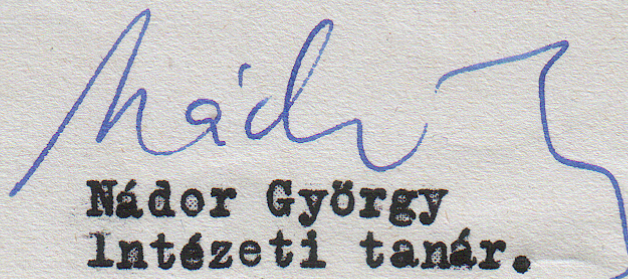 Nádor
Nádor György
Intézeti tanár.